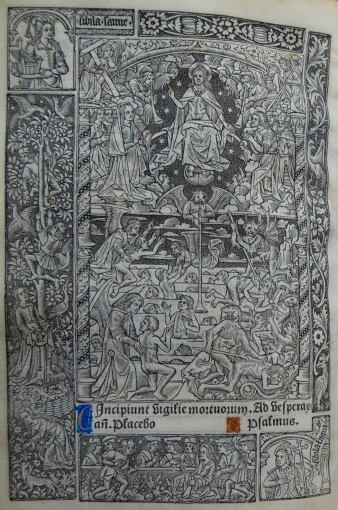 sibila
Incipiunt vigilie mortuorum. Ad vesperas
añ. Placebo Psalmus.
sibila